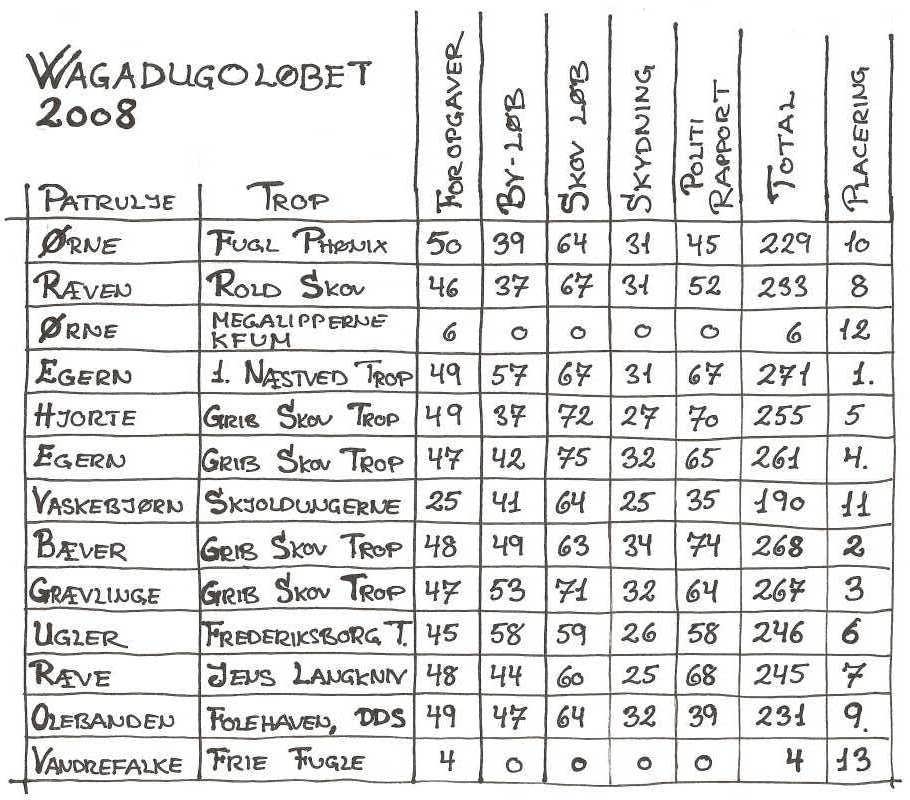 WAGADUGOLØBET
2008
PATRULJE TROP FOROPGAVER BY-LØB SKOV LØB SKYDNING POLITI RAPPORT TOTAL PLACERING
ØRNE FUGL PHØNIX 50 39 64 31 45 229 10
RÆVEN ROLD SKOV 46 37 67 31 52 233 8
ØRNE MEGALIPPERNE KFUM 6 0 0 0 0 6 12
EGERN 1. NÆSTVED TROP 49 57 67 31 67 271 1.
HJORTE GRIB SKOV TROP 49 37 72 27 70 255 5
EGERN GRIB SKOV TROP 47 42 75 32 65 261 4.
VASKEBJØRN SKJOLDUNGERNE 25 41 64 25 35 190 11
BÆVER GRIB SKOV TROP 48 49 63 34 74 268 2
GRÆVLINGE GRIB SKOV TROP 47 53 71 32 64 267 3
UGLER FREDERIKSBORG T. 45 58 59 26 58 246 6
RÆVE JENS LANGKNIV 48 44 60 25 68 245 7
OLEBANDEN FOLEHAVEN, DDS 49 47 64 32 39 231 9.
VANDREFALKE FRIE FUGLE 4 0 0 0 0 4 13